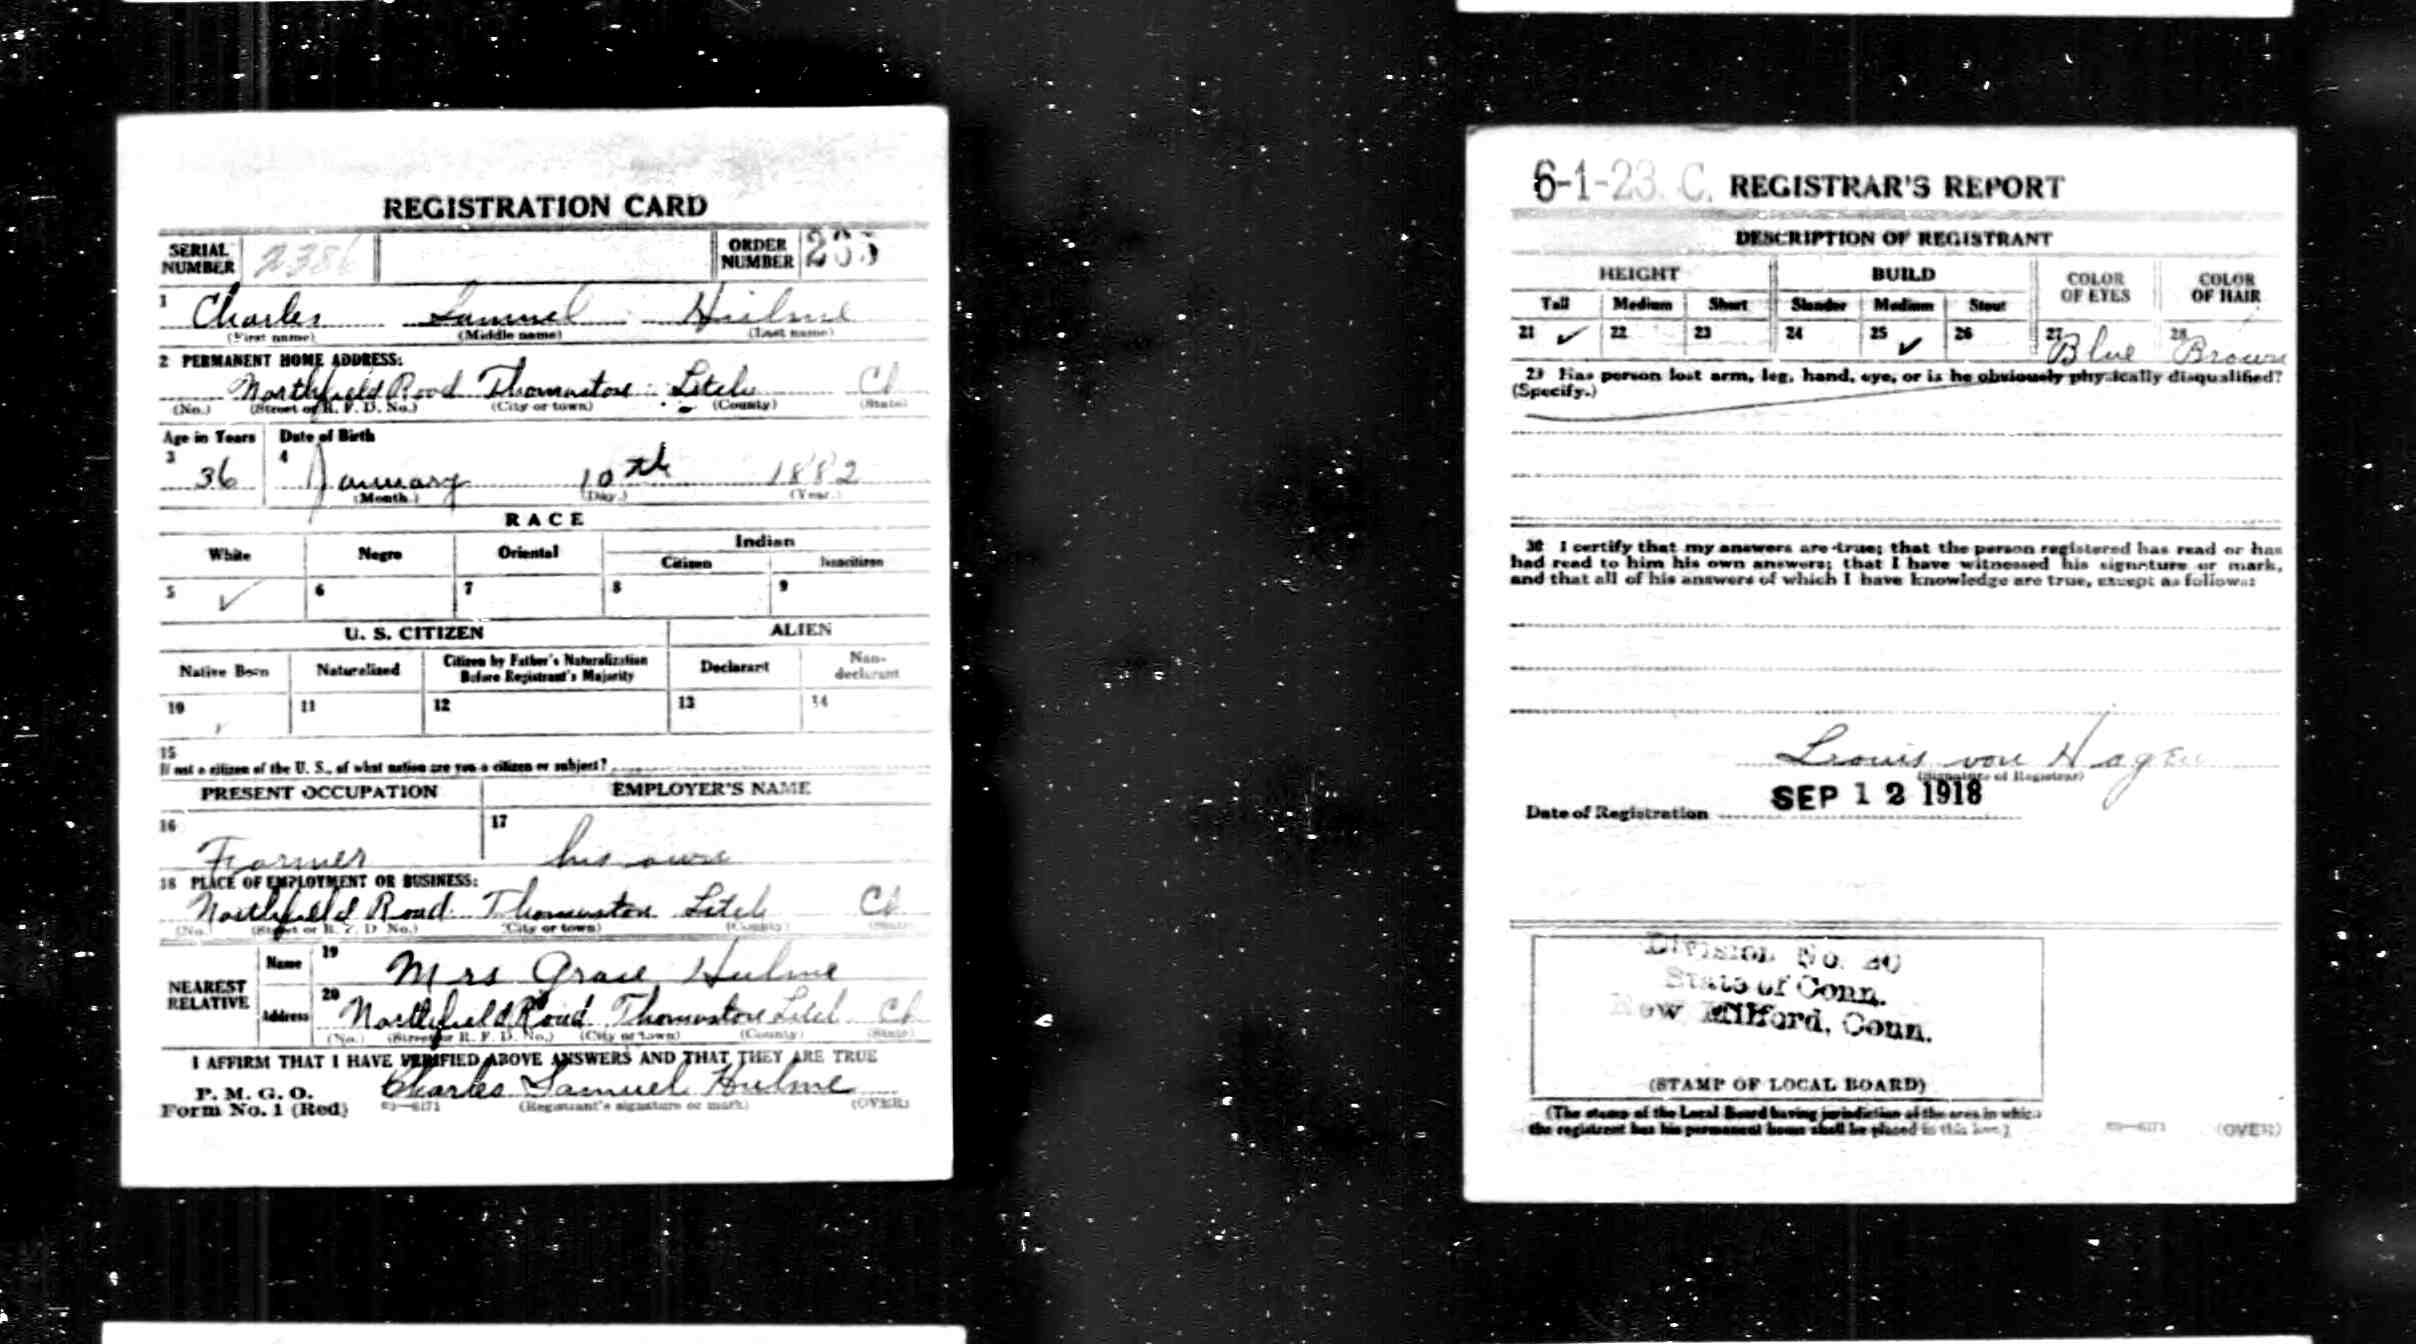 REGISTRATION CARD
SERIAL NUMBER 2386 ORDER NUMBER
1 Charles Samuel Hulme
(First name) (Middle name) (Last name)
2 PERMANENT HOME ADDRESS:
Northfield Road Thomaston Litch Ct
(No.) (Street or R. F. D. No.) (City or town) (County) (State)
Age in Years Date of Birth
3 36 4 January 10th 1882
(Month.) (Day.) (Year.)
RACE
White Negro Oriental Indian
Citizen Noncitizen
5 ✓ 6 7 8 9
U. S. CITIZEN ALIEN
Native Born Naturalized Citizen by Father's Naturalization Before Registrant's Majority Declarant Non-declarant
10 ✓ 11 12 13 14
15
If not a citizen of the U. S., of what nation are you a citizen or subject?
PRESENT OCCUPATION EMPLOYER'S NAME
16 Farmer 17 his own
18 PLACE OF EMPLOYMENT OR BUSINESS:
Northfield Road Thomaston Litch Ct
(No.) (Street or R. F. D. No.) (City or town) (County) (State)
NEAREST RELATIVE Name 19 Mrs Grace Hulme
Address 20 Northfield Road Thomaston Litch Ct
(No.) (Street or R. F. D. No.) (City or town) (County) (State)
I AFFIRM THAT I HAVE VERIFIED ABOVE ANSWERS AND THAT THEY ARE TRUE
P. M. G. O.
Form No. 1 (Red) Charles Samuel Hulme
03—6171 (Registrant's signature or mark) (OVER)
6-1-23. C. REGISTRAR'S REPORT
DESCRIPTION OF REGISTRANT
HEIGHT BUILD COLOR OF EYES COLOR OF HAIR
Tall Medium Short Slender Medium Stout
21 ✓ 22 23 24 25 ✓ 26 27 Blue 28 Brown
29 Has person lost arm, leg, hand, eye, or is he obviously physically disqualified?
(Specify.)
30 I certify that my answers are true; that the person registered has read or has
had read to him his own answers; that I have witnessed his signature or mark,
and that all of his answers of which I have knowledge are true, except as follows:
Louis von Hagen
(Signature of Registrar)
Date of Registration SEP 12 1918
Division No. 20
State of Conn.
New Milford, Conn.
(STAMP OF LOCAL BOARD)
(The stamp of the Local Board having jurisdiction of the area in which
the registrant has his permanent home shall be placed in this box.)
03—6171 (OVER)